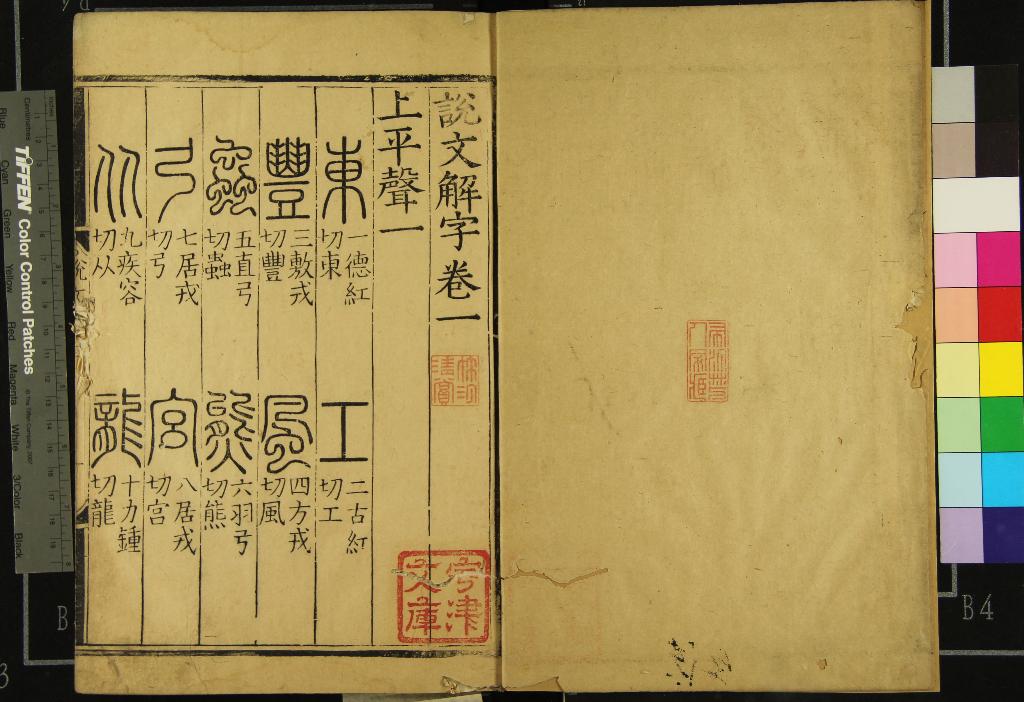 說文解字卷一
上平聲一
東 一德紅切東 工 二古紅切工
豐 三敷戎切豐 風 四方戎切風
蟲 五直弓切蟲 熊 六羽弓切熊
弓 七居戎切弓 宮 八居戎切宮
从 九疾容切从 龍 十力鍾切龍
宇津
文庫
TIFFEN Color Control Patches
Blue Cyan Green Yellow Red Magenta White 3/Color Black
B4